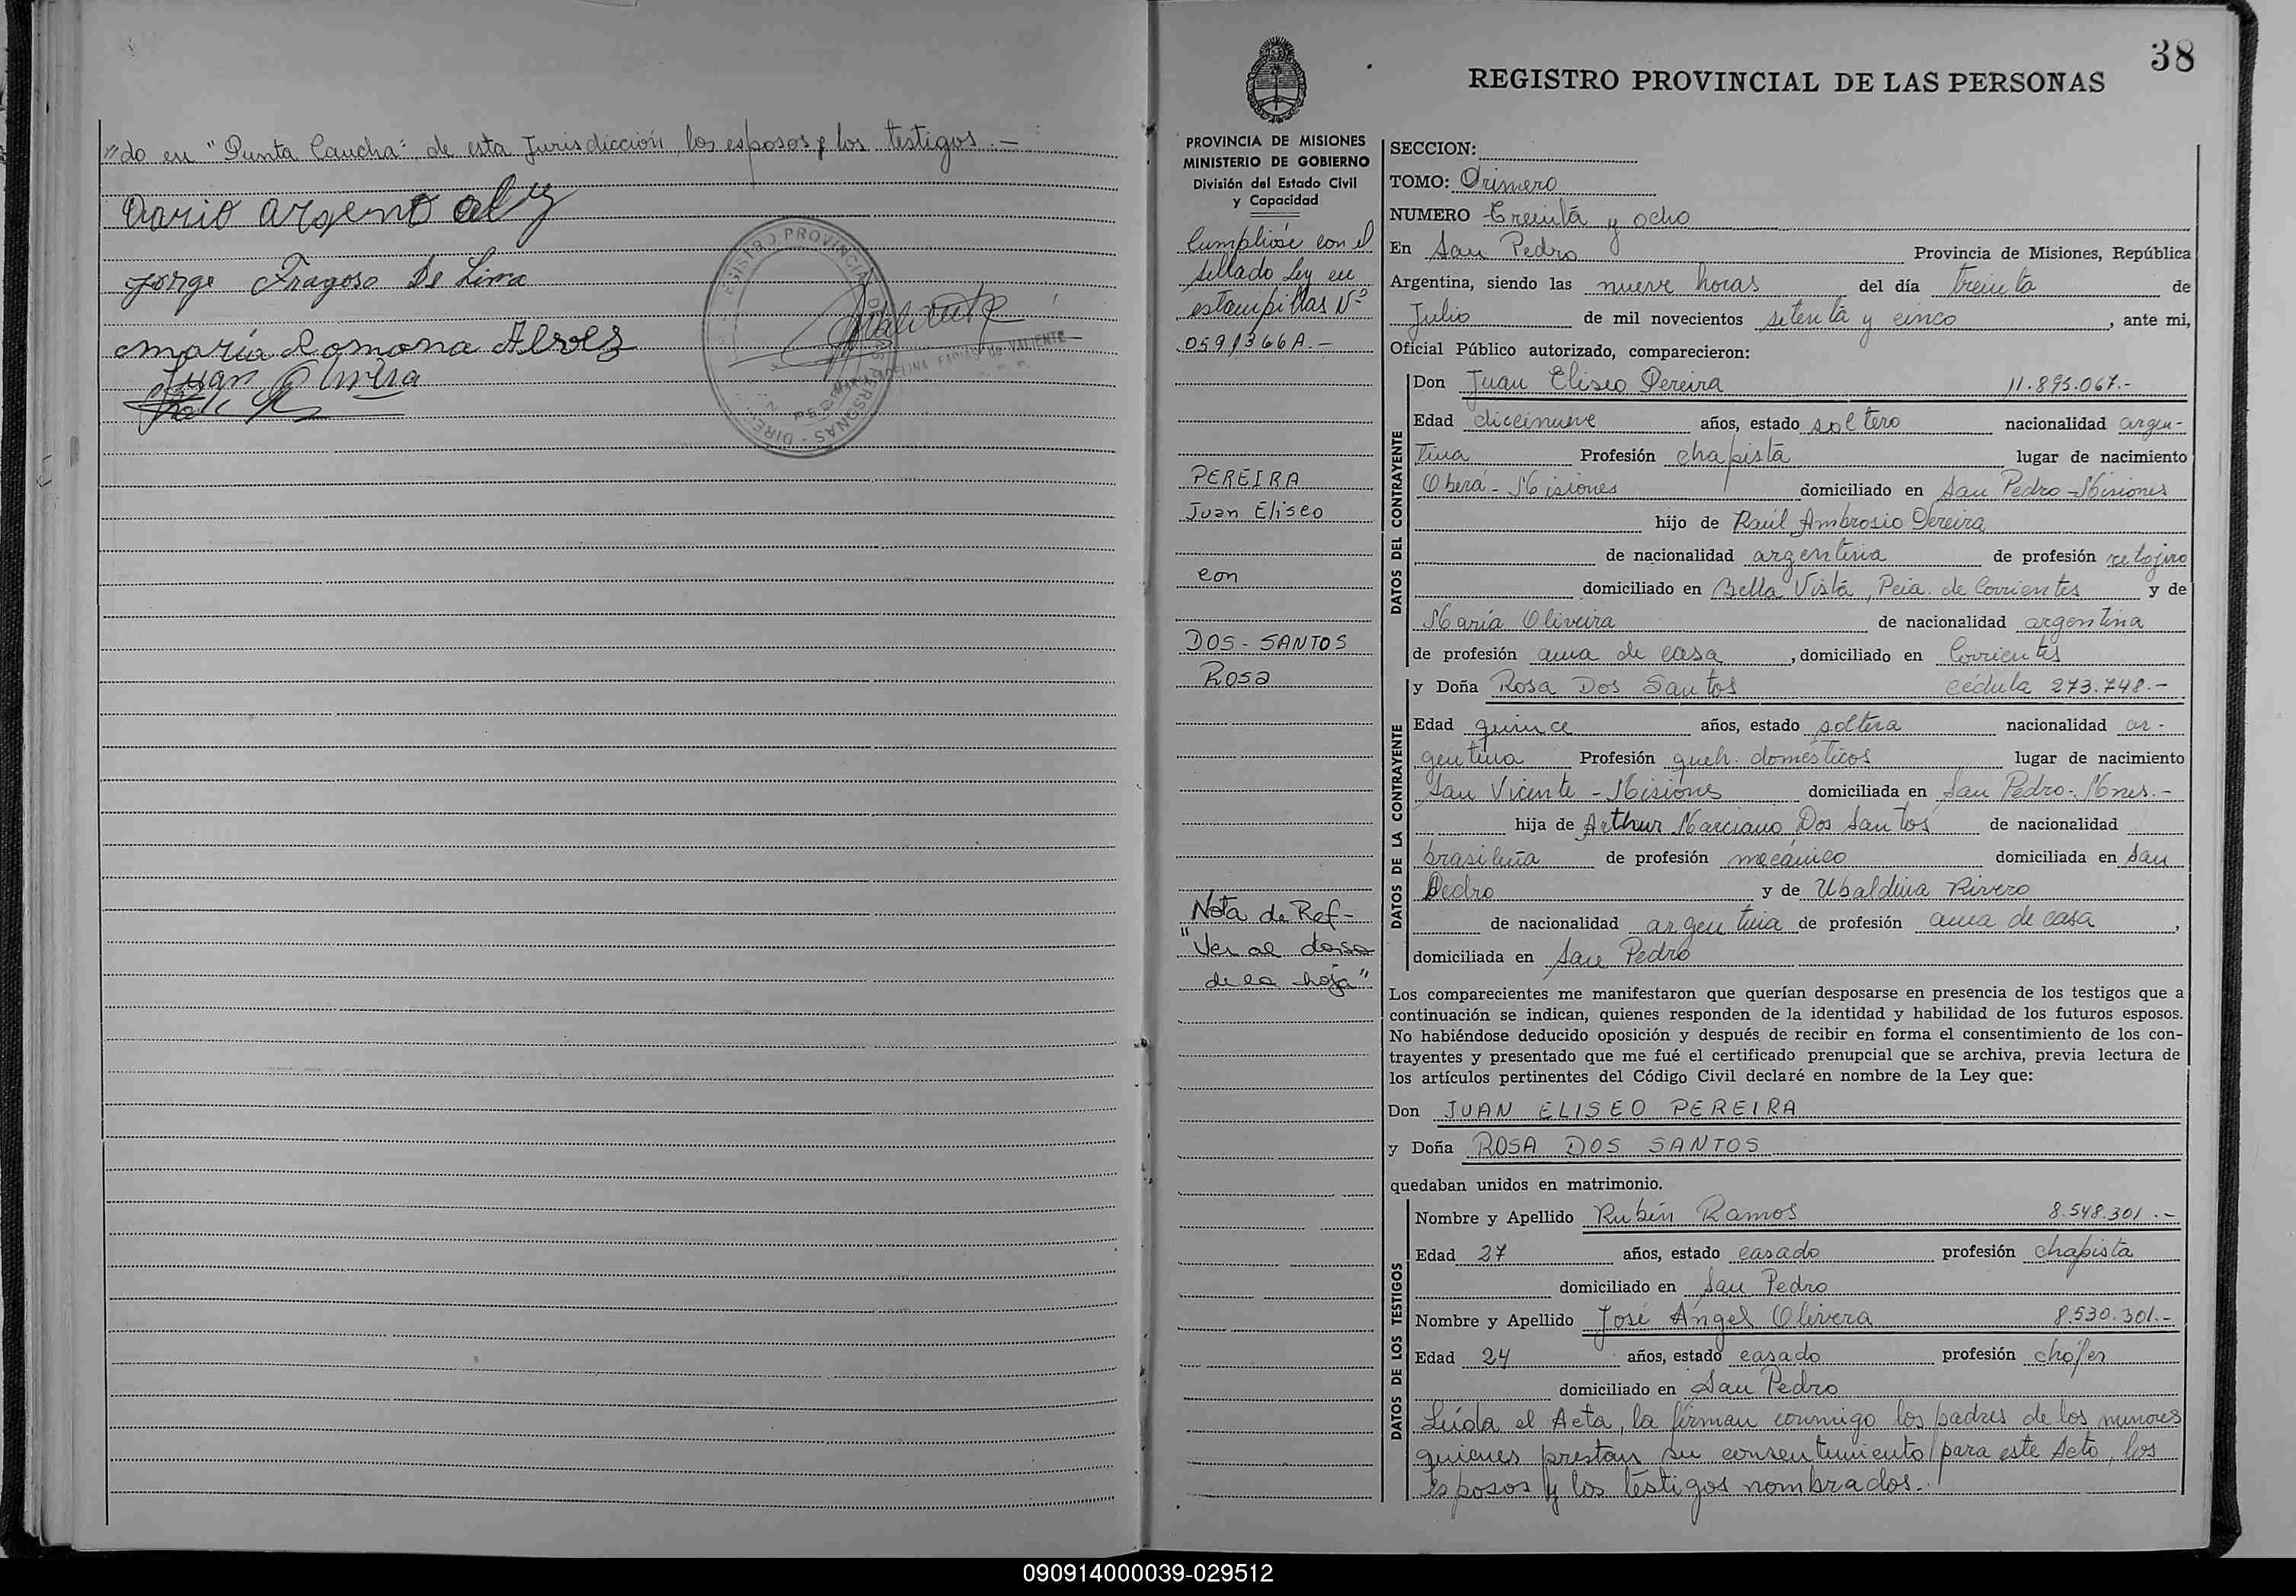 "do en "Punta Caucha" de esta Jurisdicción, los esposos y los testigos.-
Dario argento
Jorge Fragoso De Lima
maría Ramona Alvez
Juan Olivera
REGISTRO PROVINCIAL
PERSONAS
DIRE
FARIAS de VALIENTE
38
REGISTRO PROVINCIAL DE LAS PERSONAS
PROVINCIA DE MISIONES
MINISTERIO DE GOBIERNO
División del Estado Civil
y Capacidad
Cumplióse con el
sellado Ley en
estampillas Nº
0591366A.-
PEREIRA
Juan Eliseo
con
DOS-SANTOS
Rosa
Nota de Ref-
"Ver al dorso
de la hoja"
SECCION:
TOMO: Primero
NUMERO Treinta y ocho
En San Pedro Provincia de Misiones, República
Argentina, siendo las nueve horas del día treinta de
Julio de mil novecientos setenta y cinco, ante mi,
Oficial Público autorizado, comparecieron:
DATOS DEL CONTRAYENTE
Don Juan Eliseo Pereira 11.895.067.-
Edad diecinueve años, estado soltero nacionalidad argen-
tina Profesión chapista lugar de nacimiento
Oberá - Misiones domiciliado en San Pedro - Misiones
hijo de Raúl Ambrosio Pereira
de nacionalidad argentina de profesión relojero
domiciliado en Bella Vista, Pcia. de Corrientes y de
María Oliveira de nacionalidad argentina
de profesión ama de casa, domiciliado en Corrientes
DATOS DE LA CONTRAYENTE
y Doña Rosa Dos Santos cédula 273.748.-
Edad quince años, estado soltera nacionalidad ar-
gentina Profesión queh. domésticos lugar de nacimiento
San Vicente - Misiones domiciliada en San Pedro - Mnes.-
hija de Arthur Marciano Dos Santos de nacionalidad
brasileña de profesión mecánico domiciliada en San
Pedro y de Ubaldina Rivero
de nacionalidad argentina de profesión ama de casa,
domiciliada en San Pedro
Los comparecientes me manifestaron que querían desposarse en presencia de los testigos que a
continuación se indican, quienes responden de la identidad y habilidad de los futuros esposos.
No habiéndose deducido oposición y después de recibir en forma el consentimiento de los con-
trayentes y presentado que me fué el certificado prenupcial que se archiva, previa lectura de
los artículos pertinentes del Código Civil declaré en nombre de la Ley que:
Don JUAN ELISEO PEREIRA
y Doña ROSA DOS SANTOS
quedaban unidos en matrimonio.
DATOS DE LOS TESTIGOS
Nombre y Apellido Rubén Ramos 8.548.301.-
Edad 27 años, estado casado profesión chapista
domiciliado en San Pedro
Nombre y Apellido José Ángel Olivera 8.530.301.-
Edad 24 años, estado casado profesión chófer
domiciliado en San Pedro
Leída el Acta, la firman conmigo los padres de los menores
quienes prestan su consentimiento para este Acto, los
esposos y los testigos nombrados.-
090914000039-029512